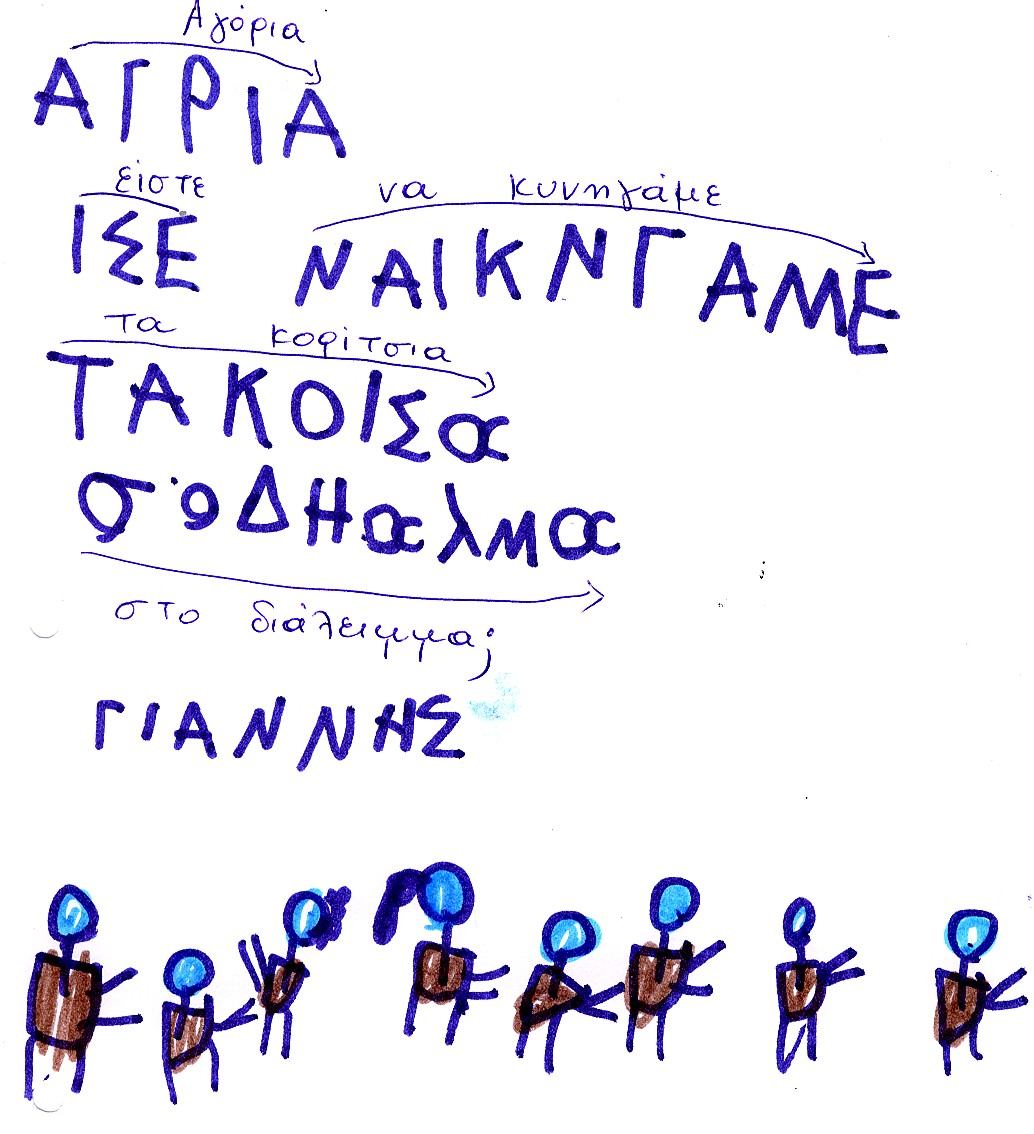 Αγόρια
ΑΓΡΙΑ
είστε να κυνηγάμε
ΙΣΕ ΝΑΙΚΝΓΑΜΕ
τα κορίτσια
ΤΑΚΟΙΣα
σ'οΔΗαλμα
στο διάλειμμα;
ΓΙΑΝΝΗΣ